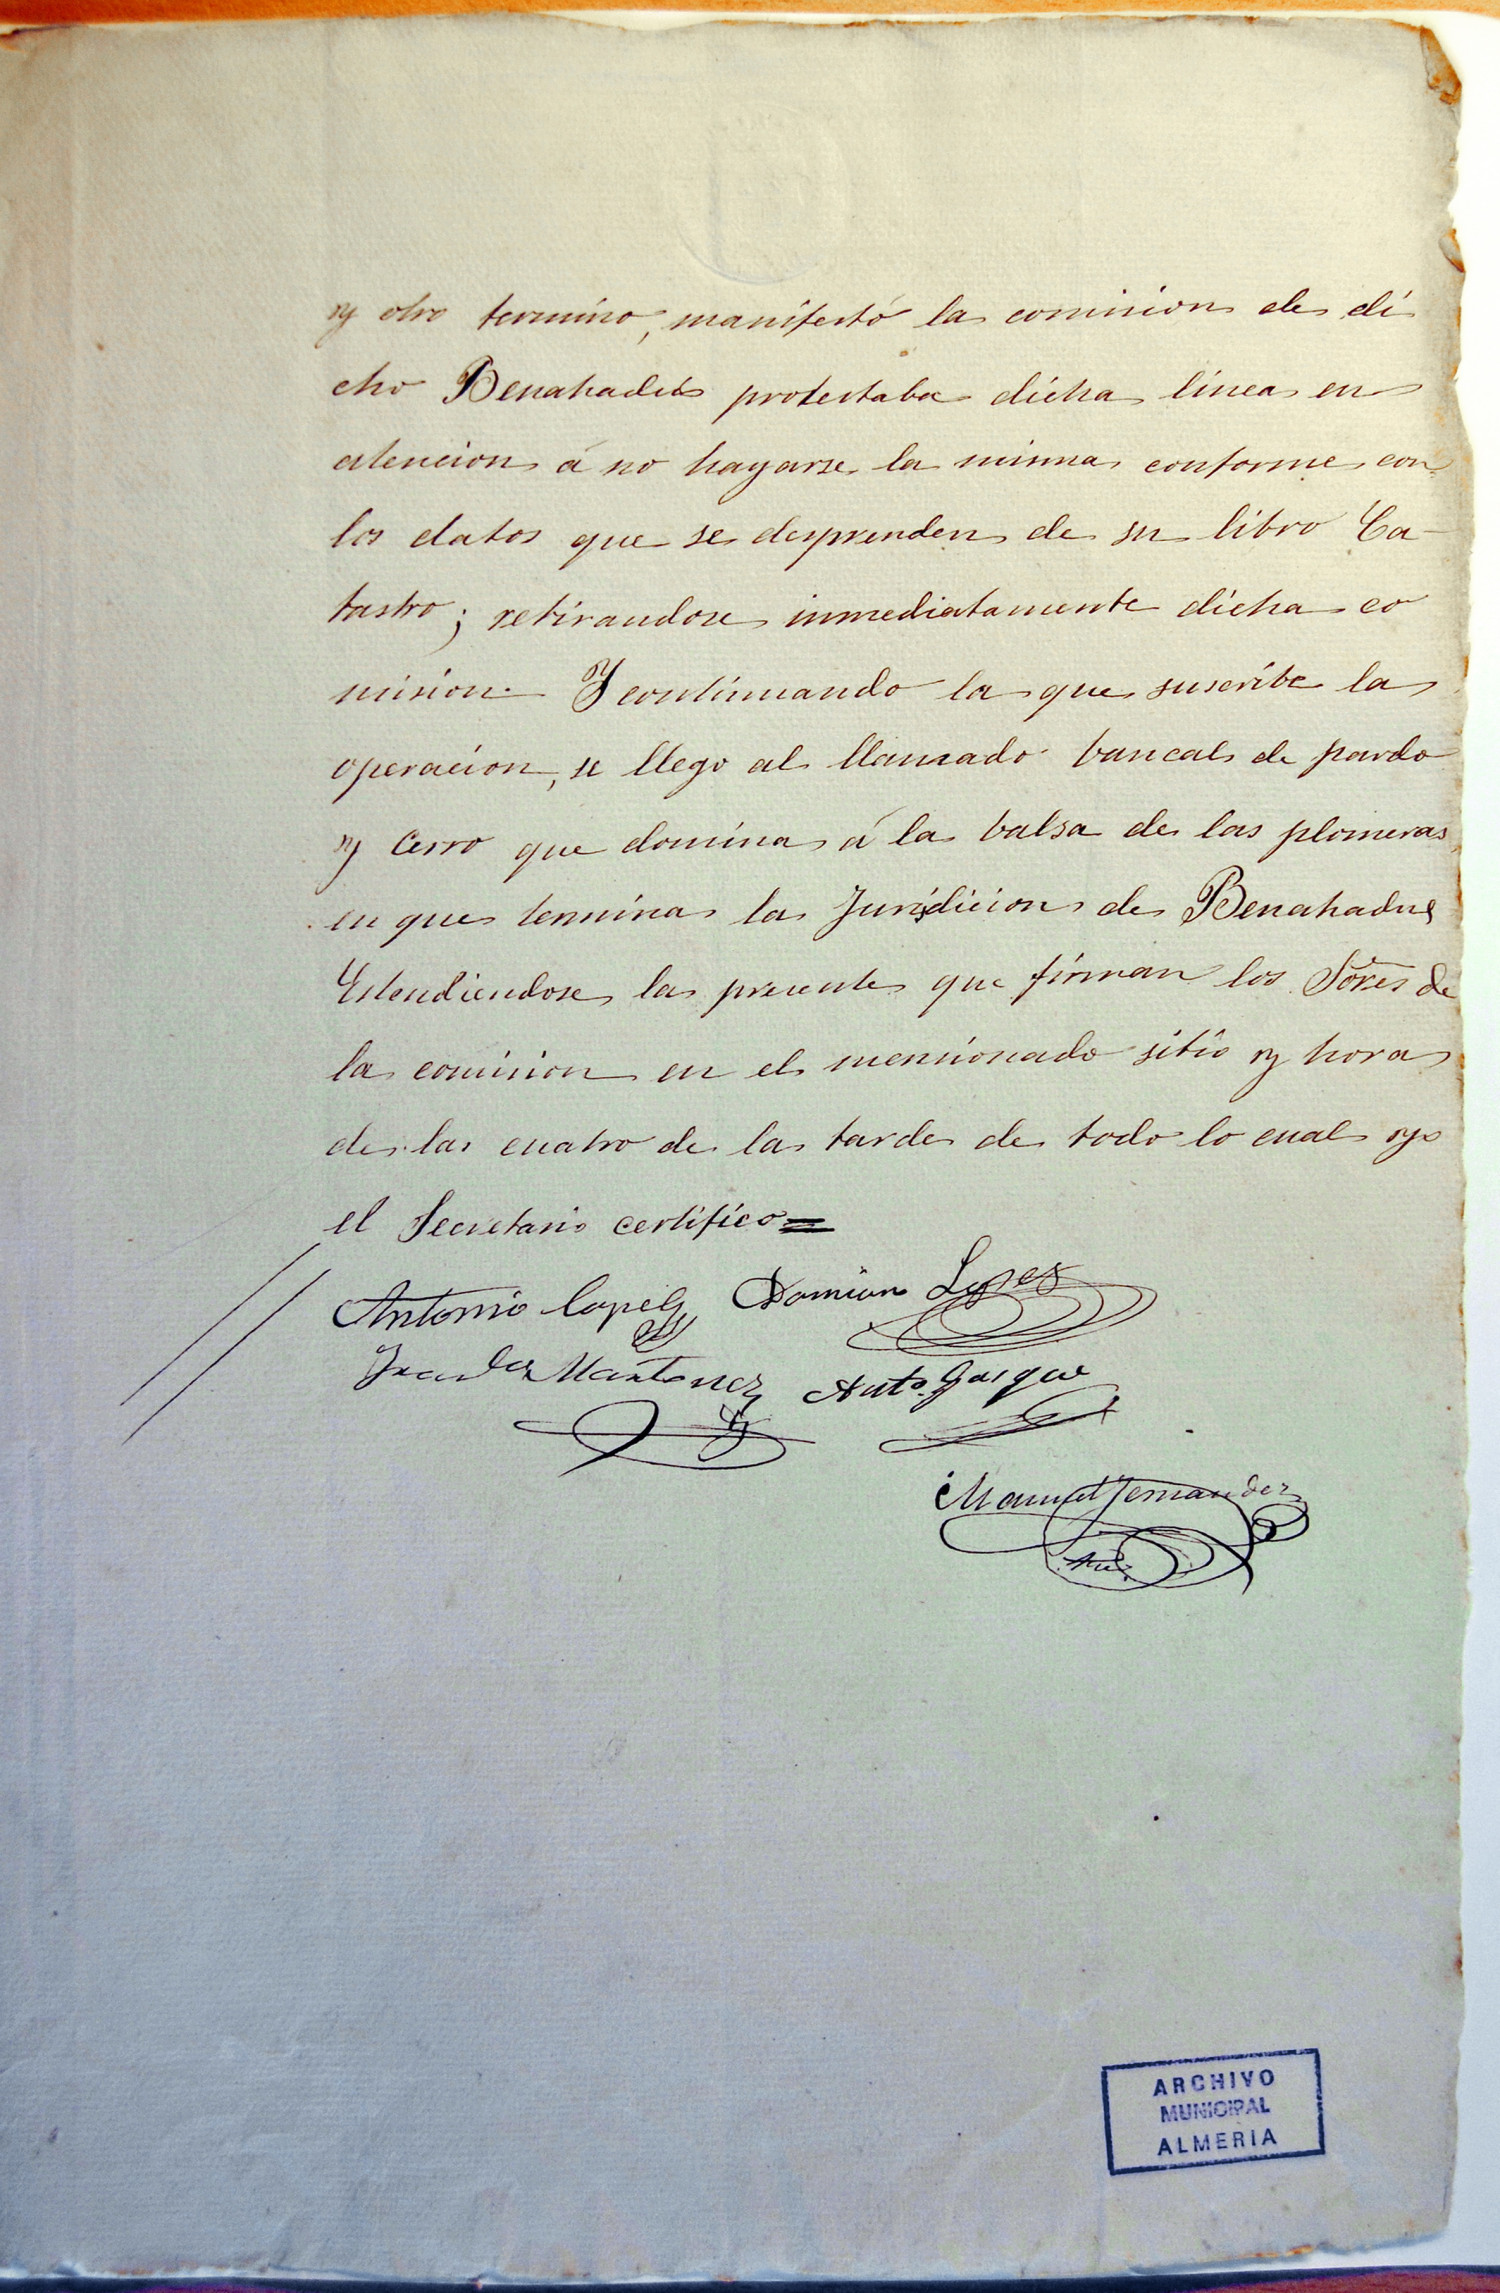 y otro termino, manifestó la comision de di
cho Benahadux protestaba dicha linea en
atencion á no hayarse la misma conforme con
los datos que se desprenden de su libro Ca-
tastro; retirandose inmediatamente dicha co
mision. Y continuando la que suscribe la
operacion, se llego al llamado bancal de pardo
y Cerro que domina á la balsa de las plomeras
en que termina la Juridicion de Benahadux
Estendiendose la presente que firman los Sores de
la comision en el mencionado sitio y hora
de las cuatro de la tarde de todo lo cual yo
el Secretario certifico=
Antonio Lopez Damian Lopez
Martinez Anto. Gasque
Manuel Fernandez
ARCHIVO
MUNICIPAL
ALMERIA